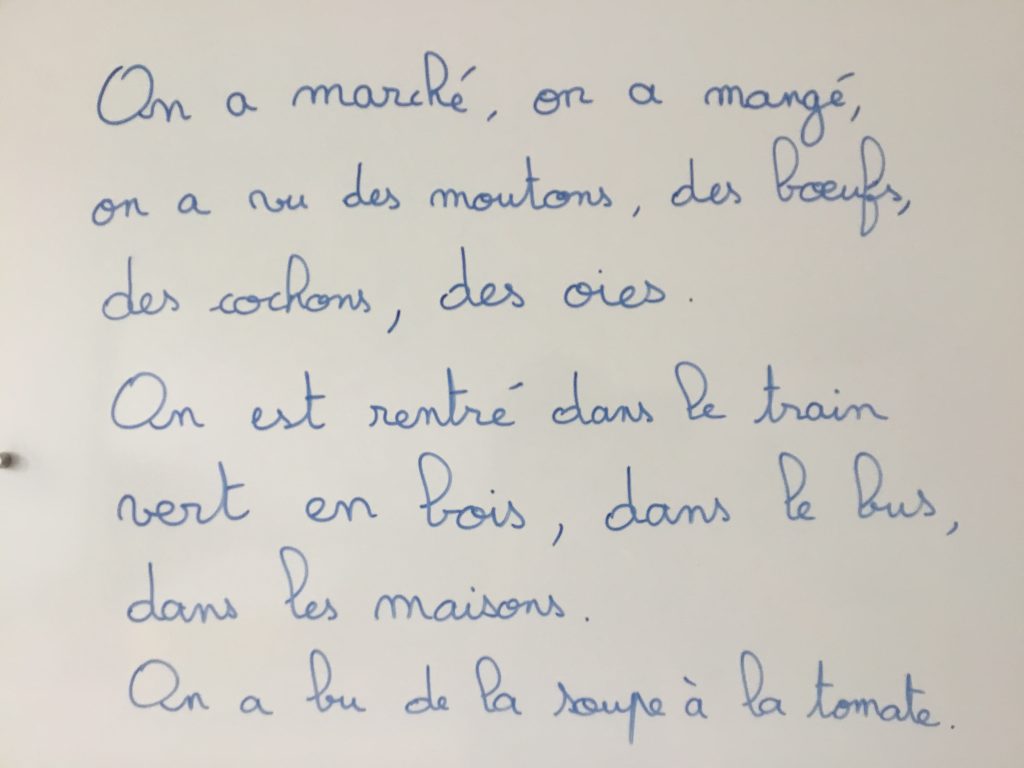 On a marché, on a mangé,
on a vu des moutons, des bœufs,
des cochons, des oies.
On est rentré dans le train
vert en bois, dans le bus,
dans les maisons.
On a bu de la soupe à la tomate.